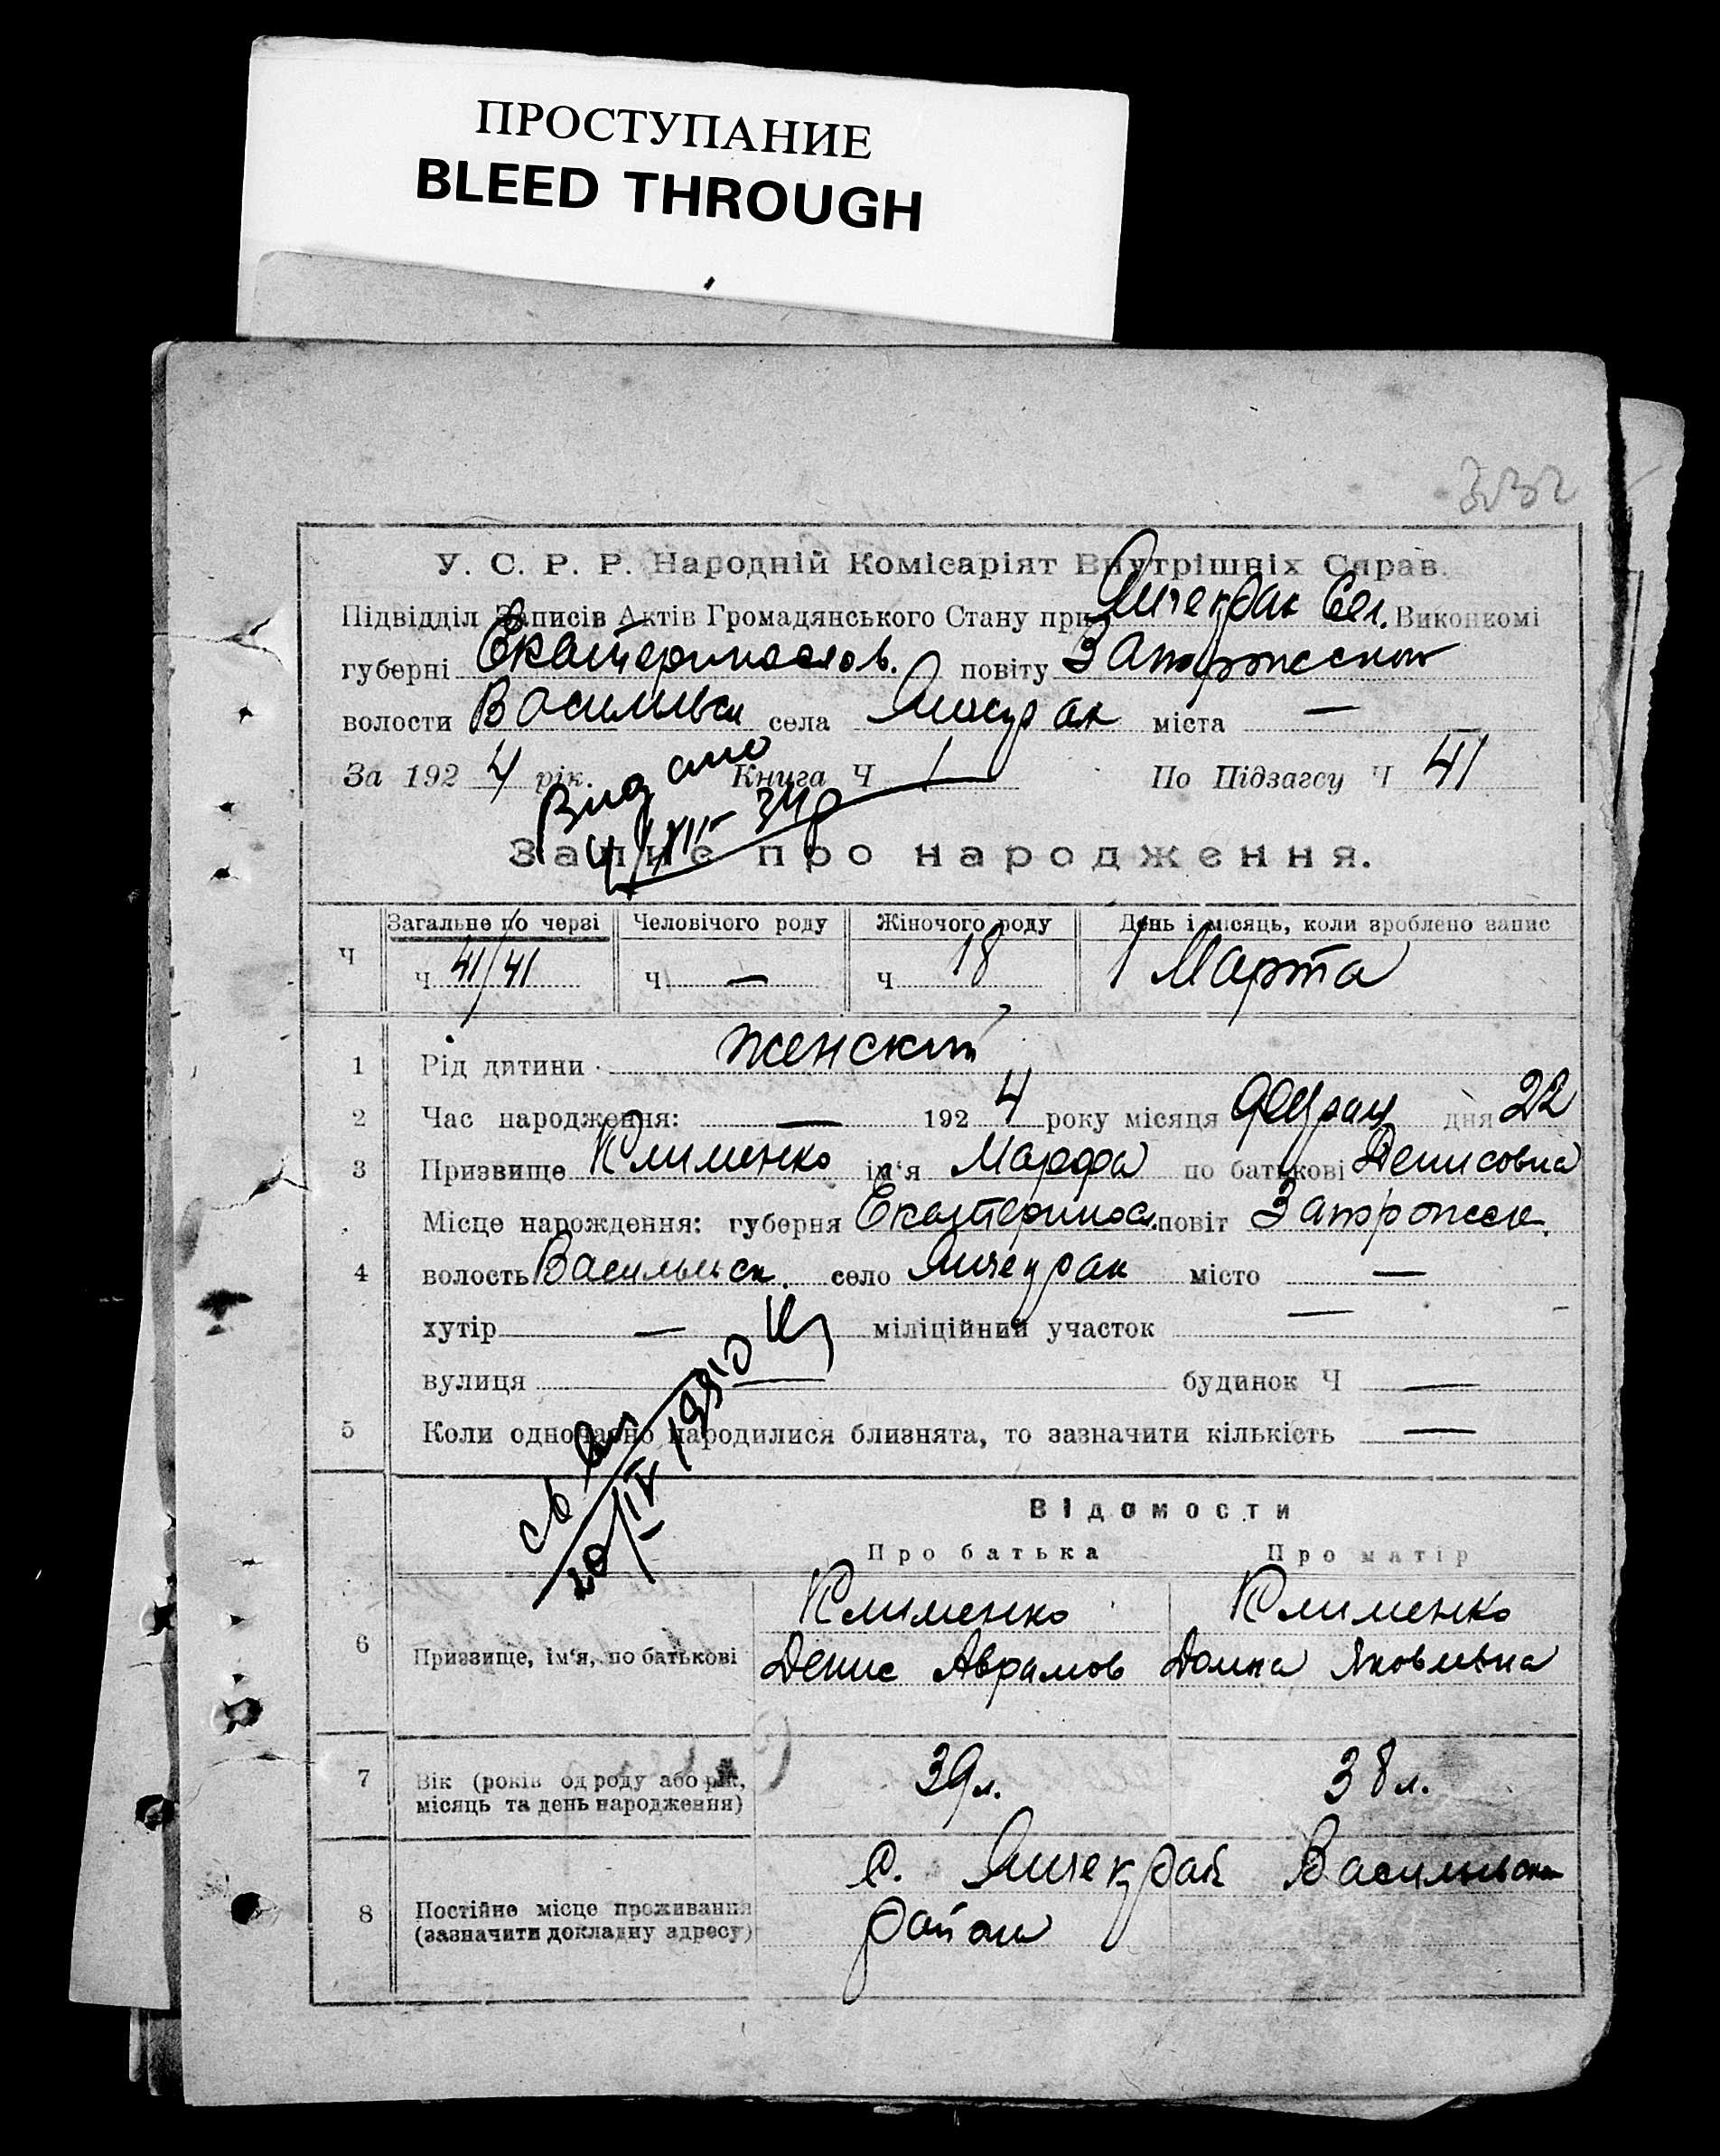 ПРОСТУПАНИЕ
BLEED THROUGH
332
У. С. Р. Р. Народній Комісаріят Внутрішніх Справ.
Підвідділ Записів Актів Громадянського Стану при Янчекрак Сел. Виконкомі
губерні Екатеринослов. повіту Запорожском
волости Васильевск села Янчекрак міста —
За 1924 рік. Книга Ч 1 По Підзагсу Ч 41
Видано
4/XII-34р
Запис про народження.
Загальне по черзі Человічого роду Жіночого роду День і місяць, коли зроблено запис
Ч Ч 41/41 Ч — Ч 18 1 Марта
1 Рід дитини женский
2 Час народження: — 1924 року місяця февраля дня 22
3 Призвище Клименко ім'я Марфа по батькові Денисовна
Місце нарождення: губерня Екатеринос. повіт Запорожск.
4 волость Васильевск. село Янчекрак місто —
хутір — міліційний участок —
вулиця — будинок Ч —
5 Коли одночасно народилися близнята, то зазначити кількість —
20/IV 1950
Відомости
Про батька Про матір
6 Призвище, ім'я, по батькові Клименко Денис Аврамов Клименко Домна Яковлевна
7 Вік (років од роду або рік, місяць та день народження) 39 л. 38 л.
8 Постійне місце проживання (зазначити докладну адресу) с. Янчекрак Васильевск района